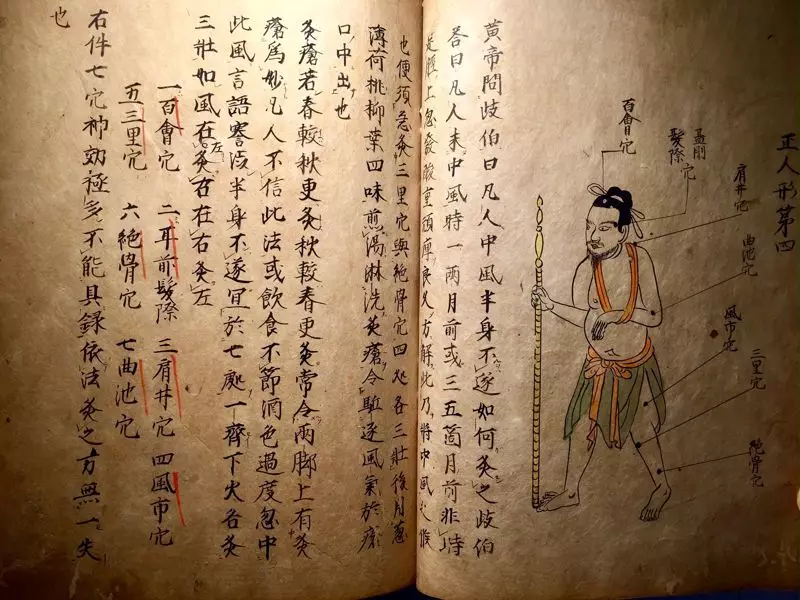 正人形第四
百會穴
耳前
髮際穴
肩井穴
曲池穴
風市穴
三里穴
絶骨穴
黄帝問歧伯曰凡人中風半身不遂如何灸之歧伯
荅曰凡人未中風時一兩月前或三五箇月前非時
足脛上忽發酸重頑痺良久方解此乃將中風之候
也便須急灸三里穴與絶骨穴四処各三壮後用葱
薄荷桃柳葉四味煎湯淋洗灸瘡令駈逐風氣於瘡
口中出也
灸瘡若春較秋更灸秋較春更灸常令兩脚上有灸
瘡為妙凡人不信此法或飲食不節酒色過度忽中
此風言語謇澁半身不遂宜於七処一齊下火各灸
三壮如風在左灸右在右灸左
一百會穴 二耳前髮際 三肩井穴 四風市穴
五三里穴 六絶骨穴 七曲池穴
右件七穴神効極多不能具録依法灸之方無一失
也